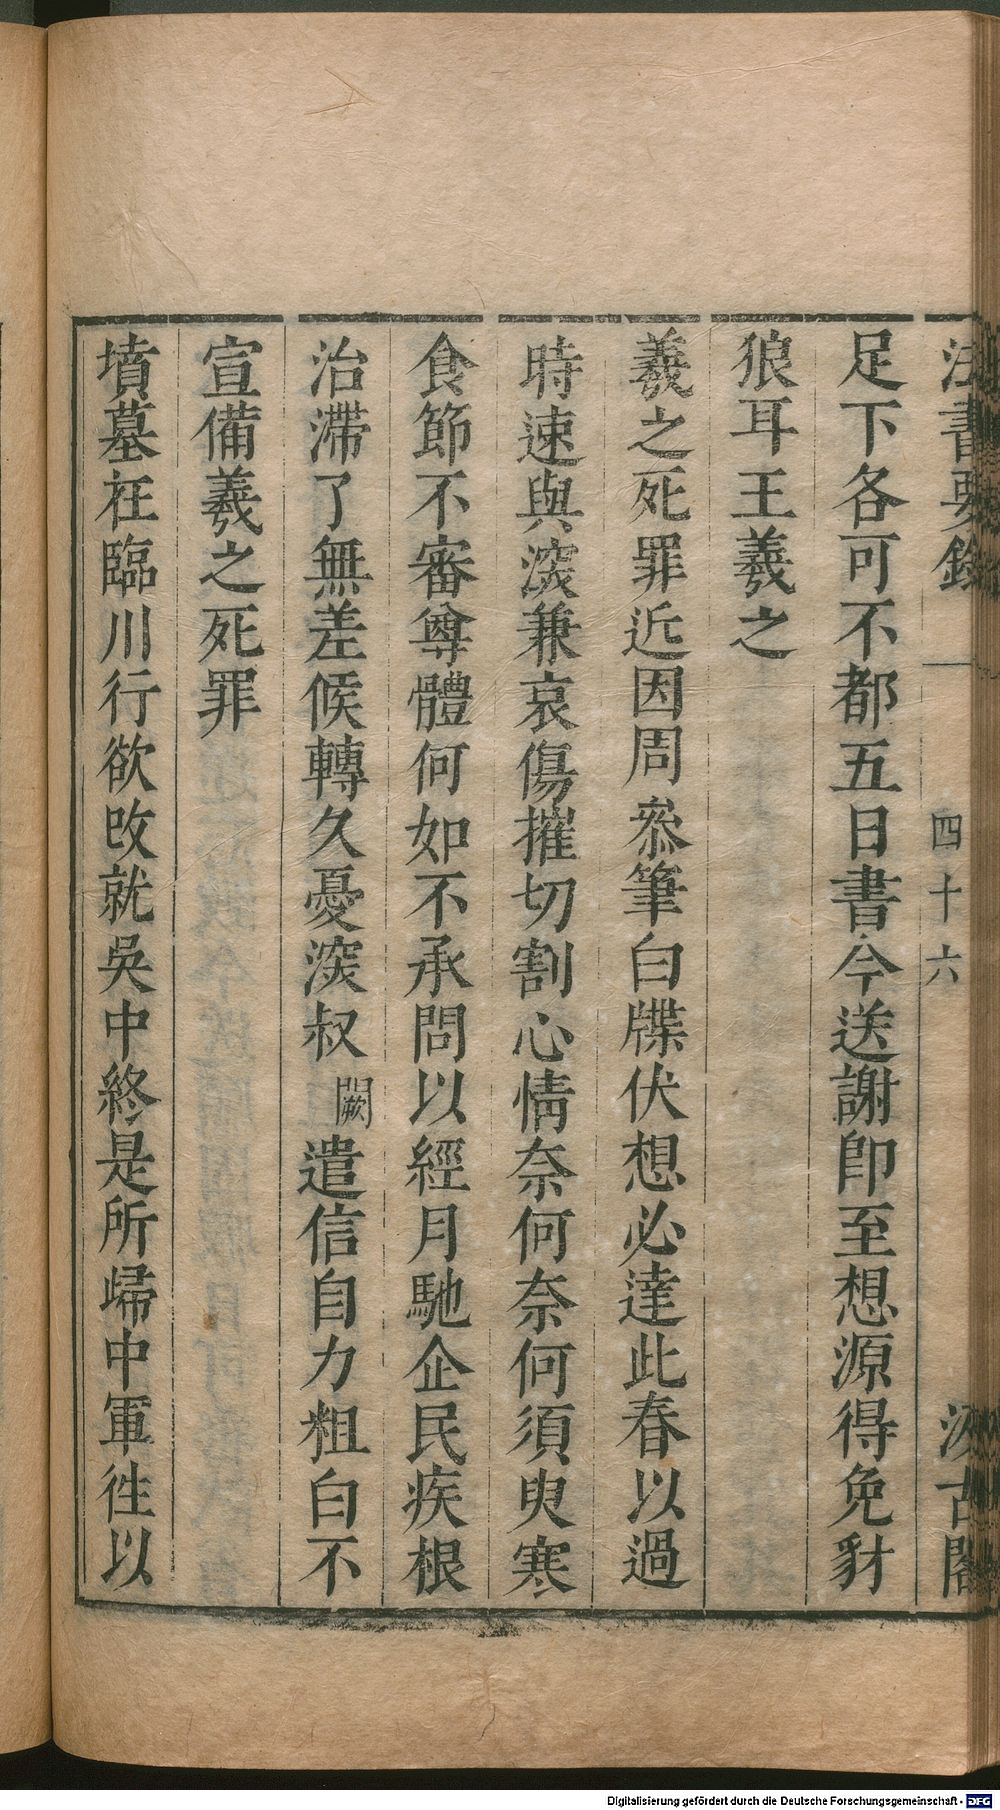 法書要錄 四十六 汲古閣
足下各可不都五日書今送謝卽至想源得免豺
狼耳王羲之
羲之死罪近因周叅筆白牒伏想必達此春以過
時速與深兼哀傷摧切割心情奈何奈何須臾寒
食節不審尊體何如不承問以經月馳企民疾根
治滯了無差候轉久憂深叔闕遣信自力粗白不
宣備羲之死罪
墳墓在臨川行欲改就吳中終是所歸中軍徃以
Digitalisierung gefördert durch die Deutsche Forschungsgemeinschaft - DFG